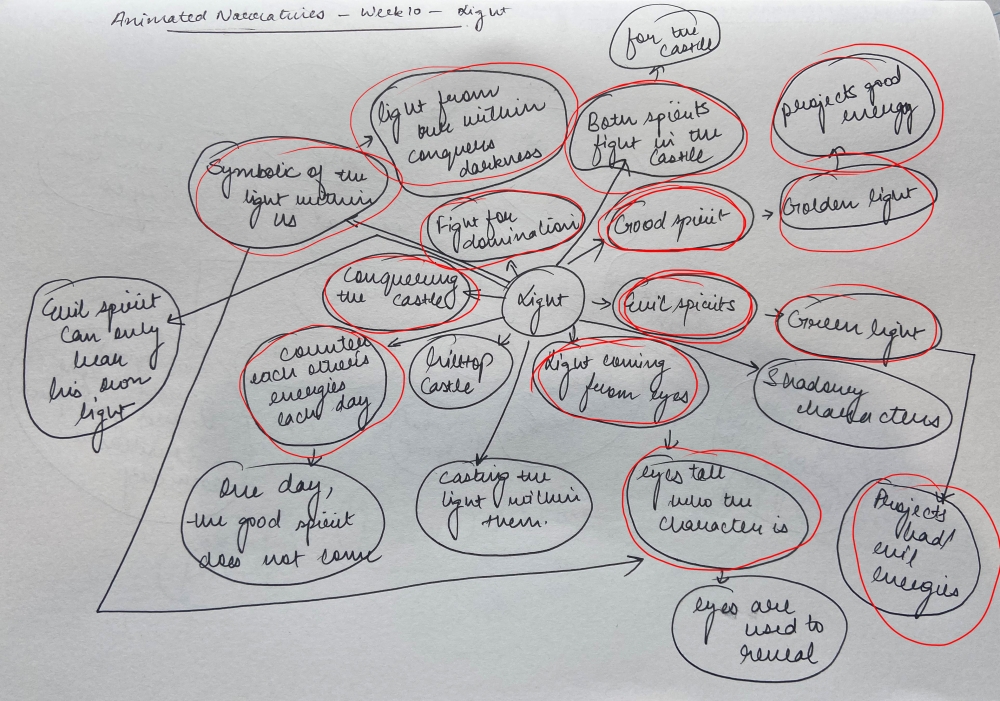 Animated Narratives - Week 10 - Light
for the
castle
light from
one within
conquers
darkness
Both spirits
fight in the
castle
projects good
energy
Symbolic of the
light within
us
Fight for
domination
Good spirit
Golden light
Conquering
the castle
Light
Evil spirits
Green light
Evil spirit
can only
hear
his own
light
counter
each others
energies
each day
hilltop
castle
Light coming
from eyes
Shadowy
characters
One day,
the good spirit
does not come
Casting the
light within
them.
eyes tell
who the
character is
Projects
bad/
evil
energies
eyes are
used to
reveal